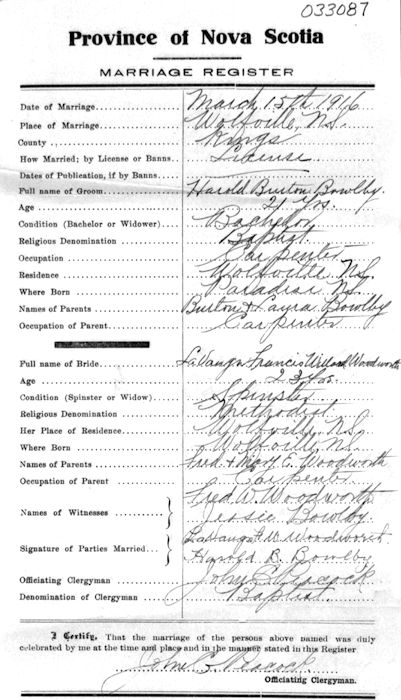 033087
Province of Nova Scotia
MARRIAGE REGISTER
Date of Marriage.......... March 15th 1916
Place of Marriage.......... Wolfville, N.S.
County .......... Kings
How Married; by License or Banns... License
Dates of Publication, if by Banns....
Full name of Groom.......... Harold Burton Bowlby
Age .......... 21 yrs.
Condition (Bachelor or Widower).... Bachelor
Religious Denomination .......... Baptist
Occupation .......... Carpenter
Residence .......... Wolfville N.S.
Where Born .......... Paradise N.S.
Names of Parents.......... Burton & Laura Bowlby
Occupation of Parent.......... Carpenter
Full name of Bride.......... LaVaughn Francis Willard Woodworth
Age .......... 23 yrs.
Condition (Spinster or Widow)...... Spinster
Religious Denomination .......... Methodist
Her Place of Residence.......... Wolfville, N.S.
Where Born .......... Wolfville, N.S.
Names of Parents .......... Fred & Mary E. Woodworth
Occupation of Parent .......... Carpenter
Names of Witnesses .......... Fred W. Woodworth
Jessie Bowlby
Signature of Parties Married... LaVaughn W. Woodworth
Harold B. Bowlby
Officiating Clergyman.......... John G. Peacock
Denomination of Clergyman........ Baptist
I Certify, That the marriage of the persons above named was duly
celebrated by me at the time and place and in the manner stated in this Register
John G. Peacock
Officiating Clergyman.